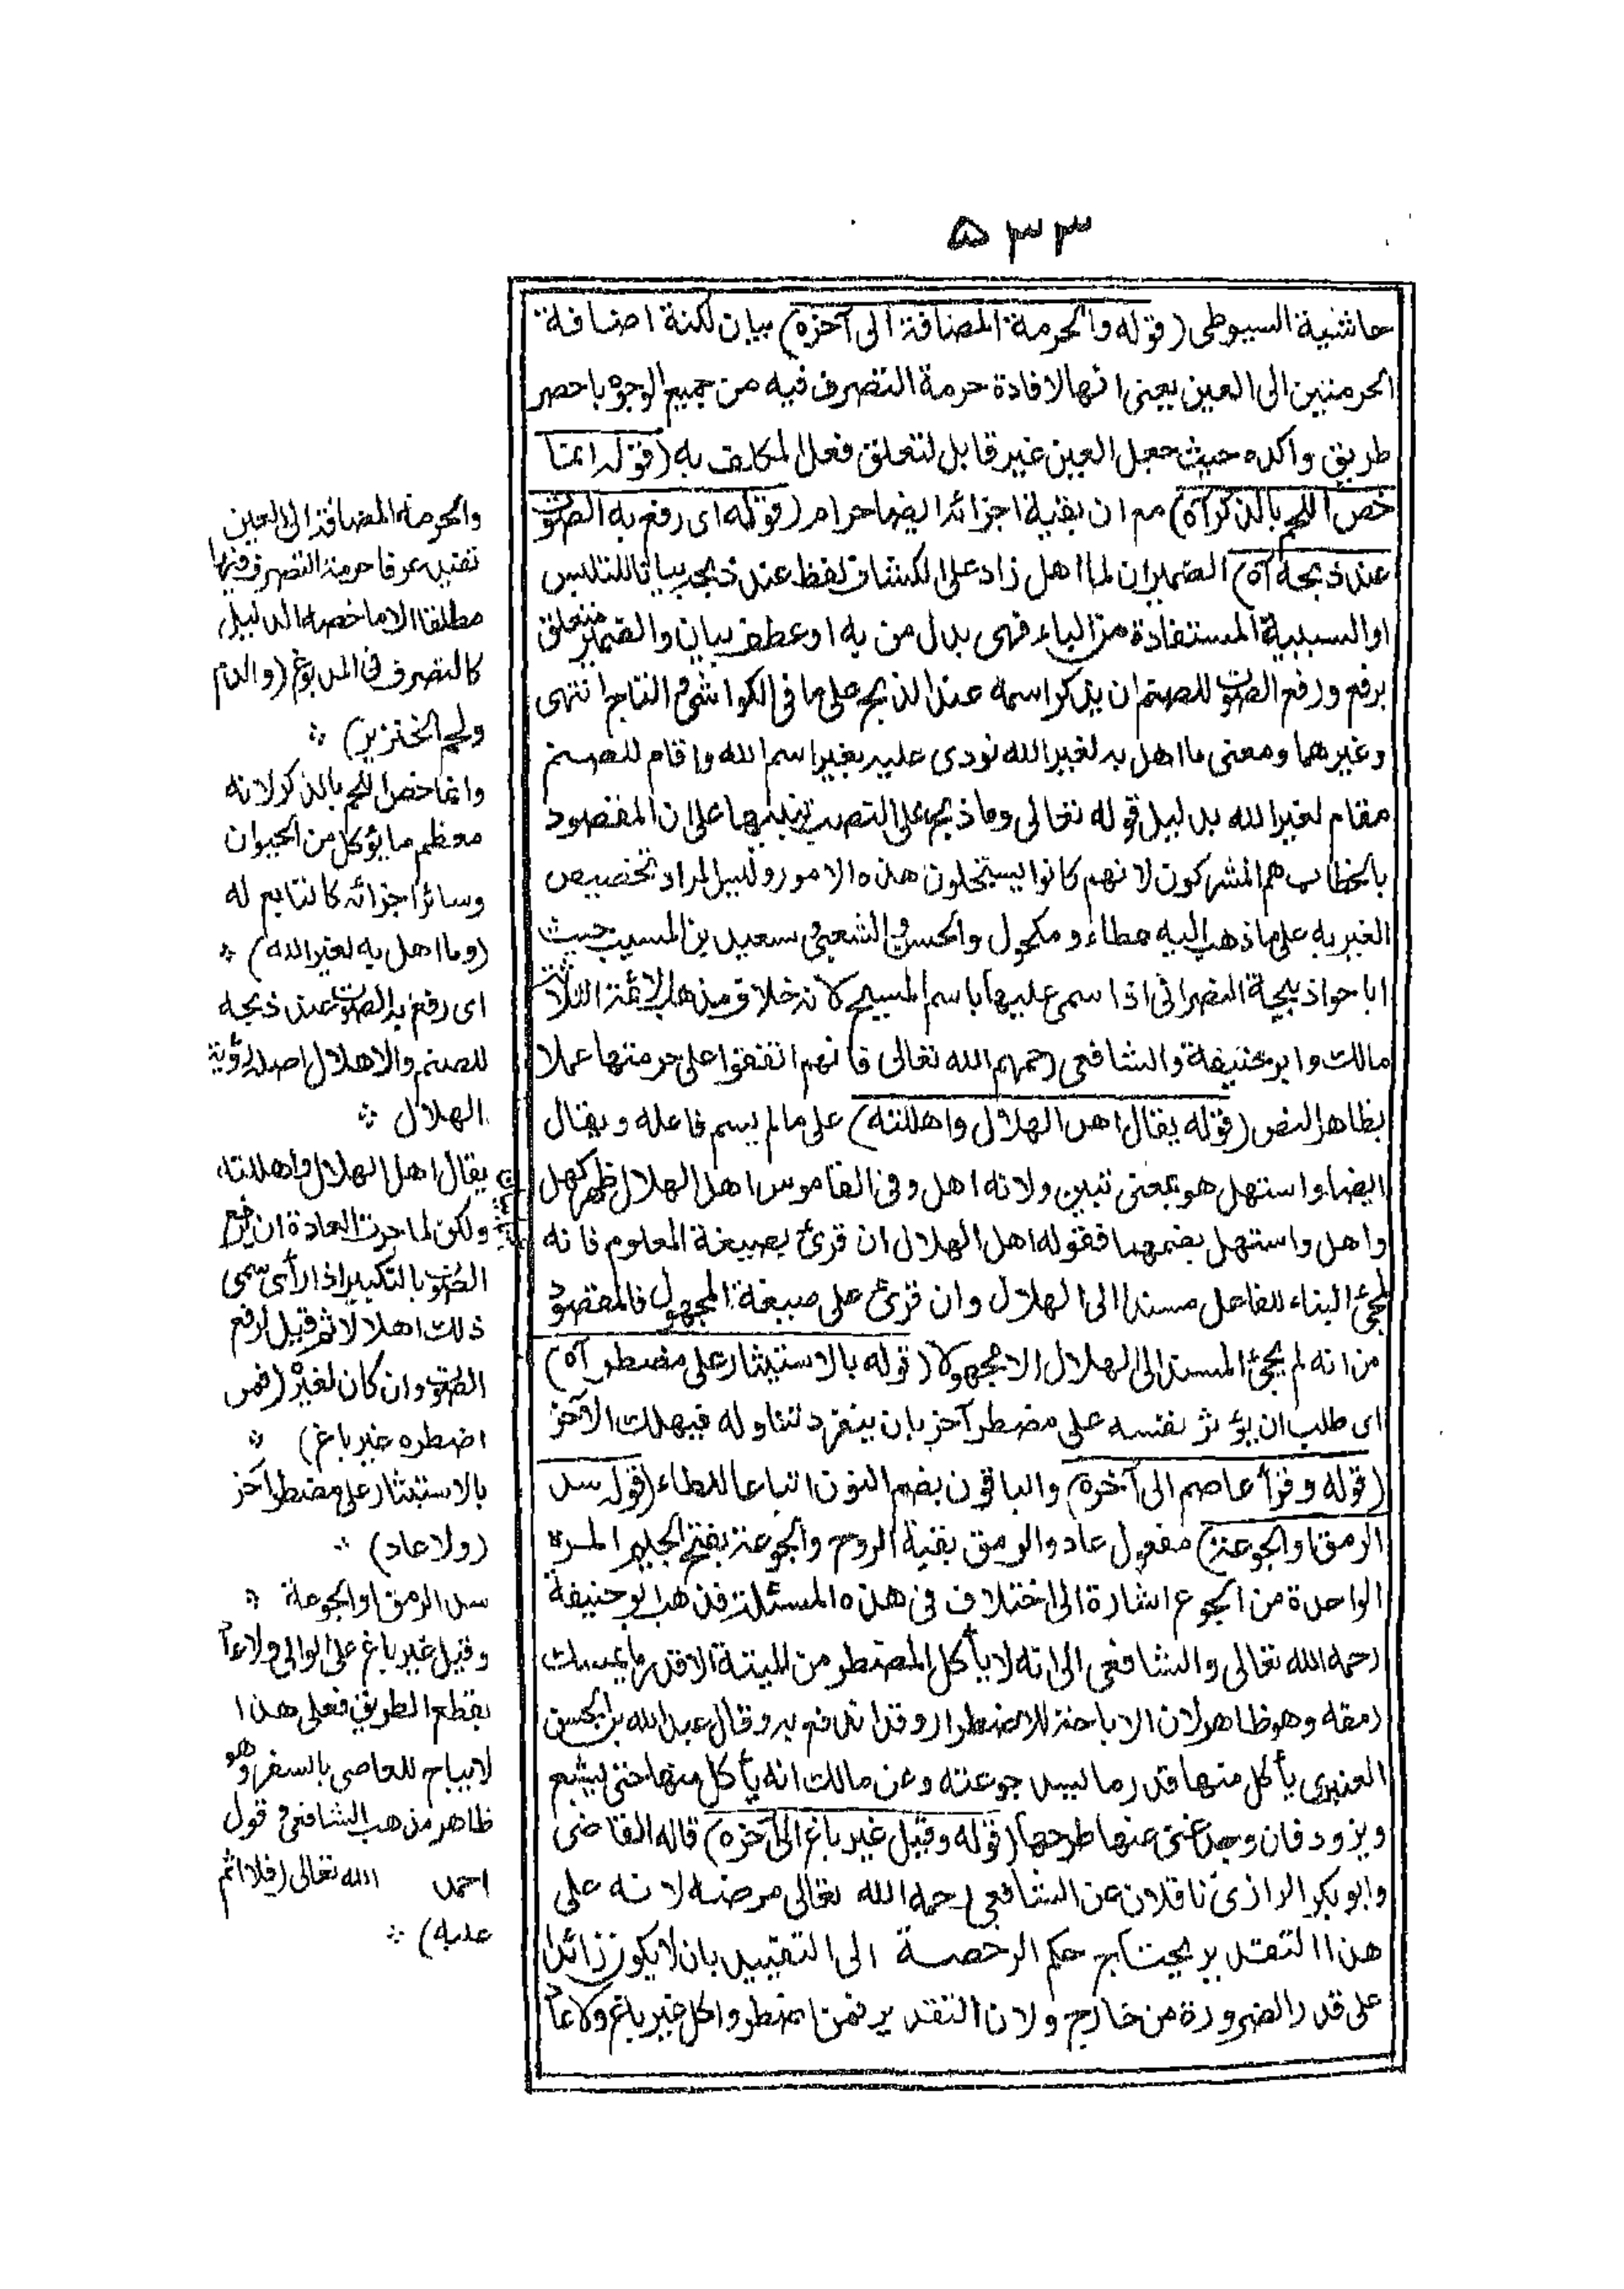 ٥٣٣
حاشية السيوطى (قوله والحرمة المضافة الى آخره) بيان لكنة اضافة
الحرمتين الى العين يعنى انها لافادة حرمة التصرف فيه من جميع الوجوه باخصر
طريق واكده حيث جعل العين غير قابل لتعلق فعل المكلف به (قوله انما
خص اللحم بالذكر آه) مع ان بقية اجزائه ايضا حرام (قوله اى رفع به الصوت
عند ذبحه آه) الضميران لما اهل زاد على الكشاف لفظ عند ذبحه بيانا للتلبس
او السببية المستفادة من الباء فهى بدل من به او عطف بيان والضمير متعلق
برفع ورفع الصوت للصنم ان يذكر اسمه عند الذبح على ما فى الكواشى و التاج انتهى
وغيرهما ومعنى ما اهل به لغير الله نودى عليه بغير اسم الله واقام للصنم
مقام لغير الله بدليل قوله تعالى وما ذبح على النصب تنبيها على ان المقصود
بالخطاب هم المشركون لانهم كانوا يستحلون هذه الامور وليس المراد تخصيص
الغير به على ما ذهب اليه عطاء و مكحول والحسن و الشعبى و سعيد بن المسيب حيث
اباحوا ذبيحة النصرانى اذا سمى عليها باسم المسيح لانه خلاف مذهب الائمة الثلاث
مالك وابو حنيفة والشافعى رحمهم الله تعالى فانهم اتفقوا على حرمتها عملا
بظاهر النص (قوله يقال اهل الهلال واهللته) على ما لم يسم فاعله ويقال
ايضا واستهل هو بمعنى تبين ولانه اهل وفى القاموس اهل الهلال ظهر كهل
واهل واستهل بضمهما فقوله اهل الهلال ان قرئ بصيغة المعلوم فانه
لمجئ البناء للفاعل مسندا الى الهلال وان قرئ على صيغة المجهول فالمقصود
من انه لم يجئ المسند الى الهلال الا مجهولا (قوله بالاستيثار على مضطر آه)
اى طلب ان يؤثر نفسه على مضطر آخر بان ينفرد لتناوله فيهلك الآخر
(قوله وقرأ عاصم الى آخره) والباقون بضم النون اتباعا للطاء (قوله سد
الرمق او الجوعة) مفعول عاد والرمق بقية الروح والجوعة بفتح الجيم المرة
الواحدة من الجوع اشارة الى اختلاف فى هذه المسئلة فذهب ابو حنيفة
رحمه الله تعالى والشافعى الى انه لا يأكل المضطر من الميتة الا قدر ما يمسك
رمقه وهو ظاهر لان الاباحة للاضطرار وقد اندفع به وقال عبد الله بن الحسن
العنبرى يأكل منها قدر ما يسد جوعته وعن مالك انه يأكل منها حتى يشبع
ويزود فان وجد غنى عنها طرحها (قوله وقيل غير باغ الى آخره) قاله القاضى
وابو بكر الرازى ناقلان عن الشافعى رحمه الله تعالى مرضه لانه على
هذا التقدير يحتاج حكم الرخصة الى التقييد بان لا يكون زائدا
على قدر الضرورة من خارج ولان التقدير فمن اضطر واكل غير باغ ولا عاد
والحرمة المضافة الى العين
تفيد عرفا حرمة التصرف فيها
مطلقا الا ما خصه الدليل
كالتصرف فى المدبوغ (والدم
ولحم الخنزير) ؞
وانما خص اللحم بالذكر لانه
معظم ما يؤكل من الحيوان
وسائر اجزائه كالتابع له
(وما اهل به لغير الله) ؞
اى رفع به الصوت عند ذبحه
للصنم والاهلال اصله رؤية
الهلال ؞
يقال اهل الهلال واهللته
ولكن لما جرت العادة ان يرفع
الصوت بالتكبير اذا رأى سمى
ذلك اهلالا ثم قيل لرفع
الصوت وان كان لغيره (فمن
اضطر غير باغ) ؞
بالاستيثار على مضطر آخر
(ولا عاد) ؞
سد الرمق او الجوعة ؞
وقيل غير باغ على الوالى ولا عاد
بقطع الطريق فعلى هذا
لا يباح للعاصى بالسفر وهو
ظاهر مذهب الشافعى و قول
احمد الله تعالى (فلا اثم
عليه) ؞